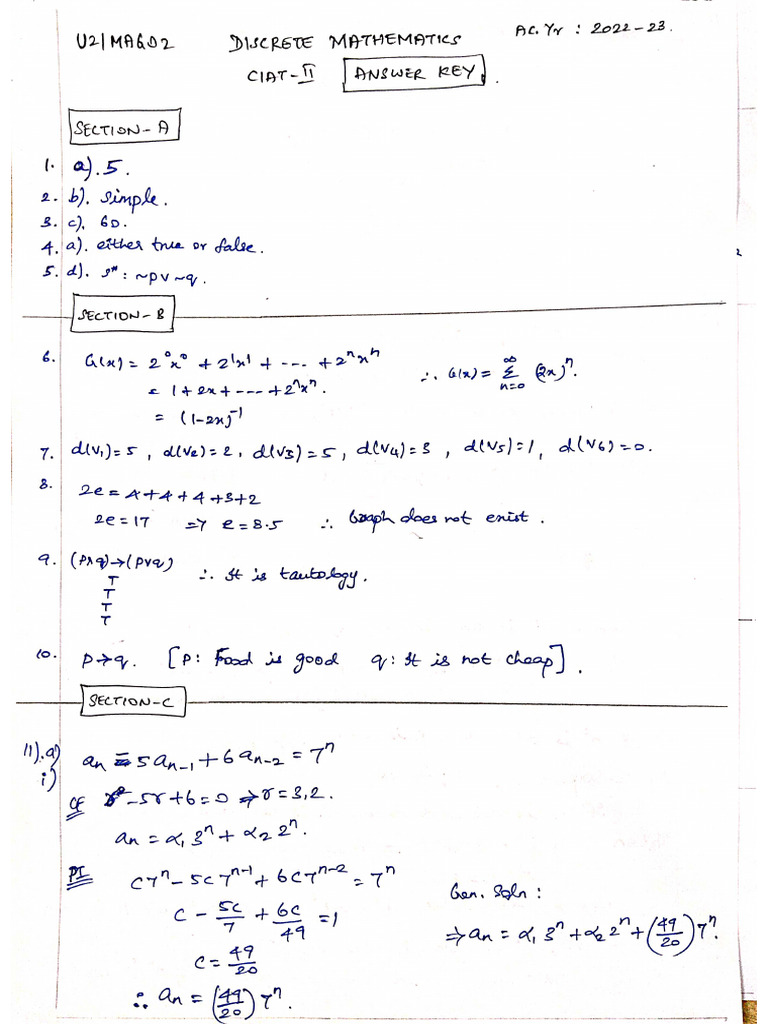 U21MAG02 DISCRETE MATHEMATICS AC. Yr : 2022-23.
CIAT-II ANSWER KEY.
SECTION-A
1. a). 5.
2. b). Simple.
3. c). 60.
4. a). either true or false.
5. d). S* : ~p∨~q.
SECTION-B
6. G(x) = 2⁰x⁰ + 2¹x¹ + --- + 2ⁿxⁿ
= 1 + 2x + --- + 2ⁿxⁿ. ∴ G(x) = Σ_{n=0}^{∞} (2x)ⁿ.
= (1-2x)⁻¹
7. d(V₁)=5, d(V₂)=2, d(V₃)=5, d(V₄)=3, d(V₅)=1, d(V₆)=0.
8. 2e = 4+4+4+3+2
2e = 17 ⇒ e = 8.5 ∴ Graph does not exist.
9. (p∧q)→(p∨q) ∴ It is tautology.
T
T
T
T
10. p→q. [p: Food is good q: It is not cheap].
SECTION-C
11). a) aₙ - 5aₙ₋₁ + 6aₙ₋₂ = 7ⁿ
i)
CF r² - 5r + 6 = 0 ⇒ r = 3,2.
aₙ = α₁3ⁿ + α₂2ⁿ.
PI c7ⁿ - 5c7ⁿ⁻¹ + 6c7ⁿ⁻² = 7ⁿ
Gen. Soln :
c - 5c/7 + 6c/49 = 1
⇒ aₙ = α₁3ⁿ + α₂2ⁿ + (49/20)7ⁿ.
c = 49/20
∴ aₙ = (49/20)7ⁿ.